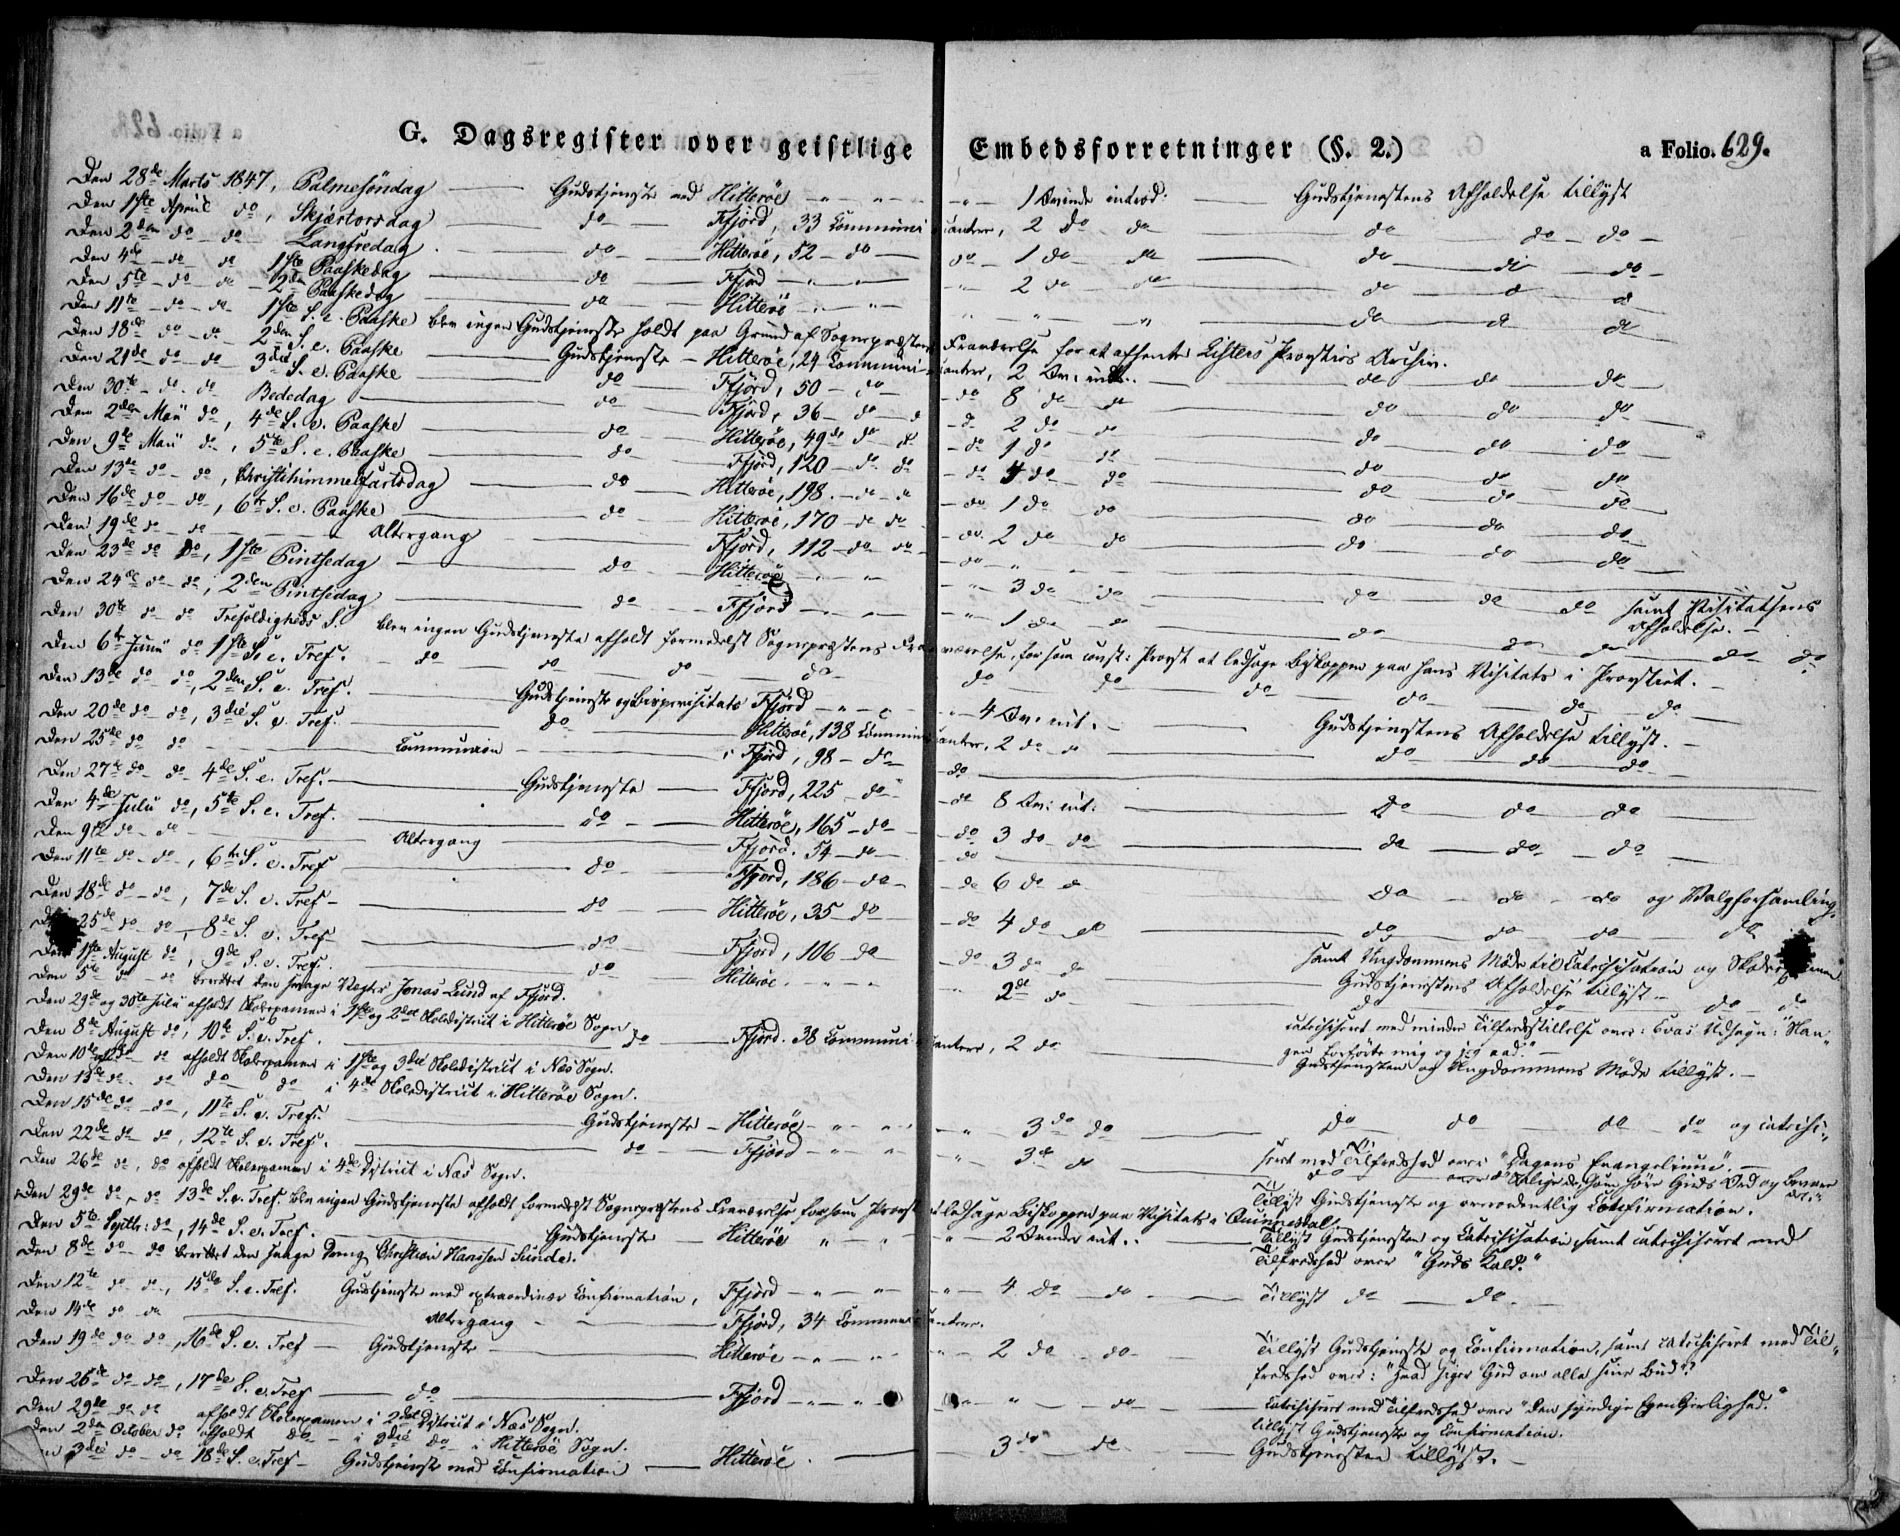 G. Dagsregister over geistlige Embedsforretninger (§. 2.) a Folio. 629.
Den 28de Marts 1847, Palmesöndag — Gudstjeneste ved Hitterøe - " - " - " 1 Qvinde introd: — Gudstjenestens Afholdelse tillyst
Den 1ste April do, Skjærtorsdag — do — Ffjord, 33 Communicantere, 2 do do — do — do - do -
Den 2den do - do Langfredag — do — Hitterøe, 52 - do — do - 1 do do — do — do — do -
Den 4de - do - do 1ste Paaskedag — do — Ffjord - " - " 2 do do — do — d — d
Den 5te - do - do - 2den Paaskedag — do — Hitterö - " - " - " — do — d — do
Den 11te - do - do 1ste S. e. Paaske blev ingen Gudstjeneste holdt paa Grund af Sognepræstens Fraværelse for at afhente Listers Provsties Archiv.
Den 18de do - do - 2den S. e. Paaske — Gudstjeneste - Hitterøe, 24 Communicantere, 2 Qv: intr. — do — do — do
Den 21de - do - do - 3die S. e. Paaske — do — Ffjord, 50 - do — do 8 do do — do — do — do
Den 30te - do - do Bededag — do — Fjord, 36 - do - d 2 do do — do — do — do
Den 2den Maii do, 4de S. e. Paaske — do — Hitterøe, 49 do do - do 1 do do — do — do — do
Den 9de Maii do, 5te S. e. Paaske — do — Ffjord, 120 - do do - do 4 do do — do — do — do
Den 13de do - do, Christihimmelfartsdag — do — Hitterøe, 198 - do - do 1 do do — do — do — do
Den 16de do - do, 6te S. e. Paaske — do — Hitterøe, 170 - do do - do 2 do do — do — do — do
Den 19de do - do — Altergang — Ffjord, 112 - do do - do "
Den 23de do do, 1ste Pintsedag — do — Hitterøe - " - " 3 do do — do — do do samt Visitatsens Afholdelse. -
Den 24de do - do, 2den Pintsedag — do — Ffjord - " - " 1 do do — do — do — do do do
Den 30te do - do Trefoldigheds S. blev ingen Gudstjeneste afholdt formedelst Sognepræstens Fraværelse, for som const: Provst at ledsage Biskoppen paa hans Visitats i Provstiet. -
Den 6te Junii do 1ste S. e. Tref. - do — do — do — do — do — do — do — do — do — do
Den 13de do - do, 2den S. e. Tref. — Gudstjeneste og Bispevisitats Ffjord - " - " 4 Qv: int. — Gudstjenestens Afholdelse tillyst. -
Den 20de do - do, 3die S. e. Tref. — do — Hitterøe, 138 Communicantere, 2 do do — do — do — do
Den 25de do - do — Communion — i Ffjord, 98 - do do
Den 27de do - do - 4de S. e. Tref. — Gudstjeneste — Ffjord, 225 - do - do 8 Qv: int: — do — do — do
Den 4de Julii do, 5te S. e. Tref. — do — Hitterøe, 165 - do - do 3 do do — do — do — do
Den 9de do - do — Altergang — Ffjord. 54 - do - do
Den 11te do - do, 6te S. e. Tref — do — Ffjord, 186 - do - do 6 do d — do — do - do og Valgforsamling.
Den 18de do - do, 7de S. e. Tref - do — Hitterøe, 35 do - do 4 do do — do — do — do — do
25de do - do, 8de S. e. Tref — do — Ffjord, 106 - do - do 3 do do — samt Ungdommens Møde til Catechisation og Skole
Den 1ste August do, 9de S. e. Tref. — do — Hitterøe. - " - " 2de do — Gudstjenestens Afholdelse tillyst - do do
Den 5te do - do berettet den svage Jonas Lund af Ffjord. do do
Den 29de og 30te Julii afholdt Skoleexamen i 1ste og 2det Skoledistrict i Hitterøe Sogn. catechiseret med mindre Tilfredsstillelse over: Evas Udsagn: "Slan-
Den 8de August do, 10de S. e. Tref. — do — Ffjord. 38 Communicantere, 2 do — gen forførte mig og jeg aad." -
Den 10de do do afholdt Skoleexamen i 1ste og 3die Skoledistrict i Næs Sogn. Gudstjenesten og Ungdommens Møde tillyst. -
Den 13de do - do do do i 4de Skoledistrict i Hitterøe Sogn.
Den 15de do - do, 11te S. e. Tref. — Gudstjeneste - Hitterøe - " - " 3 do do — do — do — do - do og catechi-
Den 22de do - do, 12te S. e. Tref. — do — Ffjord - " - " 3 d do — seret med Tilfredshed over: "Dagens Evangelium". -
Den 26de do, do afholdt Skoleexamen i 4de District i Næs Sogn. do over: "Salige de, som høre Guds Ord og bevare det."
Den 29de do - do 13de S. e. Tref. blev ingen Gudstjeneste afholdt formedelst Sognepræstens Fraværelse for som Provst at ledsage Biskoppen paa Visitats i Quinesdal. Tillyst Gudstjeneste og overordentlig Confirmation.
Den 5te Septbr: do, 14de S. e. Tref. — Gudstjeneste — Hitterøe " - " - 2 Qvinder int.: — Tillyst Gudstjenesten og Catechisation, samt catechiseret med
Den 8de do - do berettet den svage Dreng Christian Hanssen Sunde. Tilfredshed over "Guds Kald."
Den 12te do - do, 15de S. e. Tref. Gudstjeneste med extraordinær Confirmation, Ffjord - " - " - 4 do - do - Tillyst do — do. -
Den 14de do - do — Altergang — Ffjord, 34 Communicantere.
Den 19de do do, 16de S. e. Tref — Gudstjeneste — Hitterøe - " - " - 2 do - do - Tillyst Gudstjeneste og Confirmation, samt catechiseret med Til-
fredshed over: "Hvad siger Gud om alle sine Bud?
Den 26de do - do, 17de S. e. Tref — do — Ffjord - " - " - do - Catechiseret med Tilfredshed over "den syndige Egenkjerlighed."
Den 29de do - do afholdt Skoleexamen i 2det District i Næs Sogn. tillyst Gudstjeneste og Confirmation.
Den 2den October do afholdt do - i 3die do - i Hitterøe Sogn.
3die do - do 18de S. e. Tref - Gudstjeneste med Confirmation — Hitterøe. — 3 do do — Gudstjenesten tillyst. -